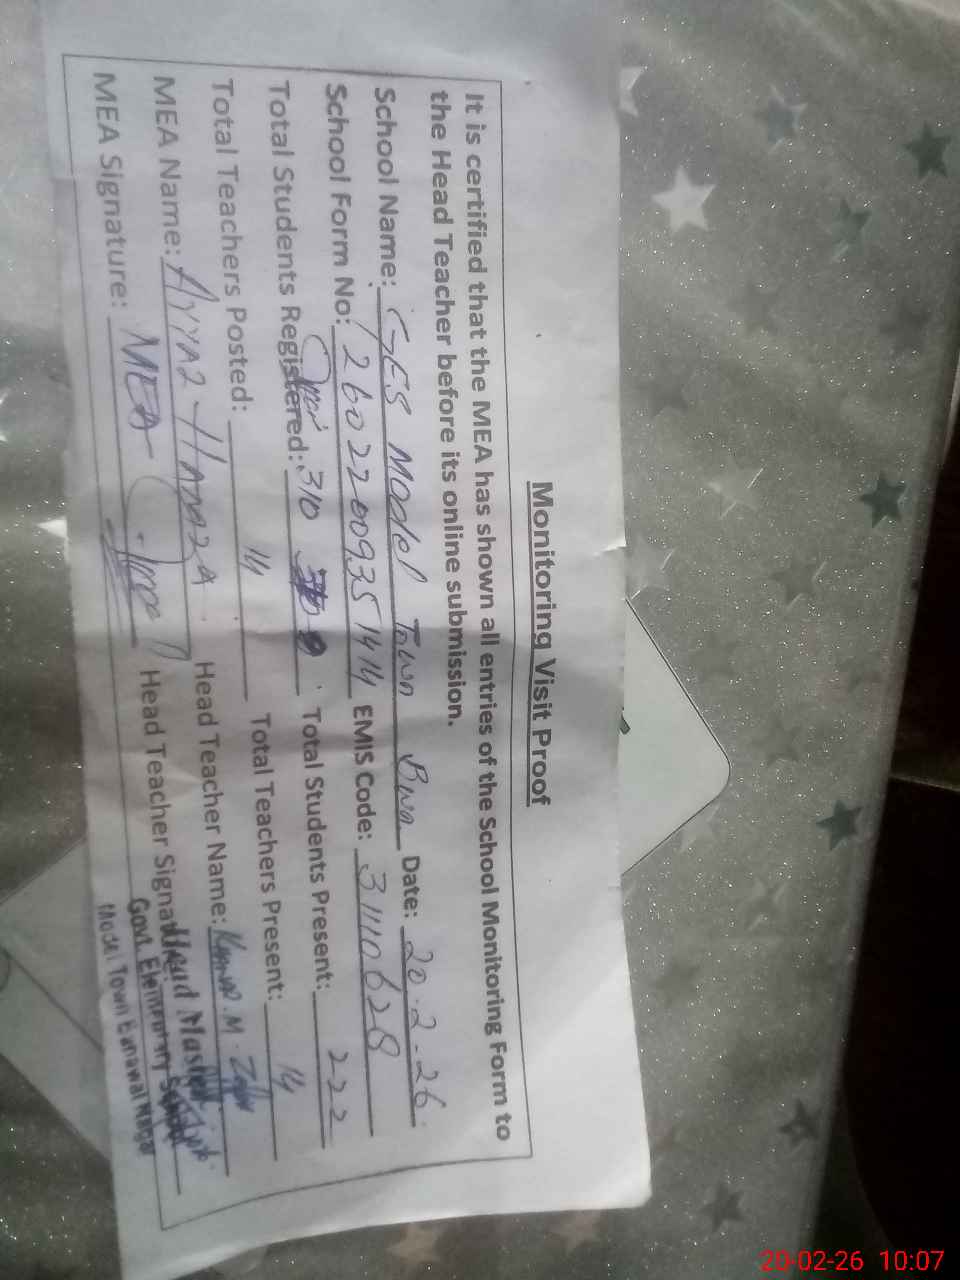 Monitoring Visit Proof
It is certified that the MEA has shown all entries of the School Monitoring Form to
the Head Teacher before its online submission.
School Name: GES Model Town Bwn Date: 20.2-26
School Form No: 260220093514 14 EMIS Code: 31110628
Total Students Registered: 310 Total Students Present: 222
Total Teachers Posted: 14 Total Teachers Present: 14
MEA Name: Head Teacher Name:
MEA Signature: MEA Head Teacher Signature:
Head Master
Govt. Elementary School
Model Town Bahawal Nagar
20-02-26 10:07